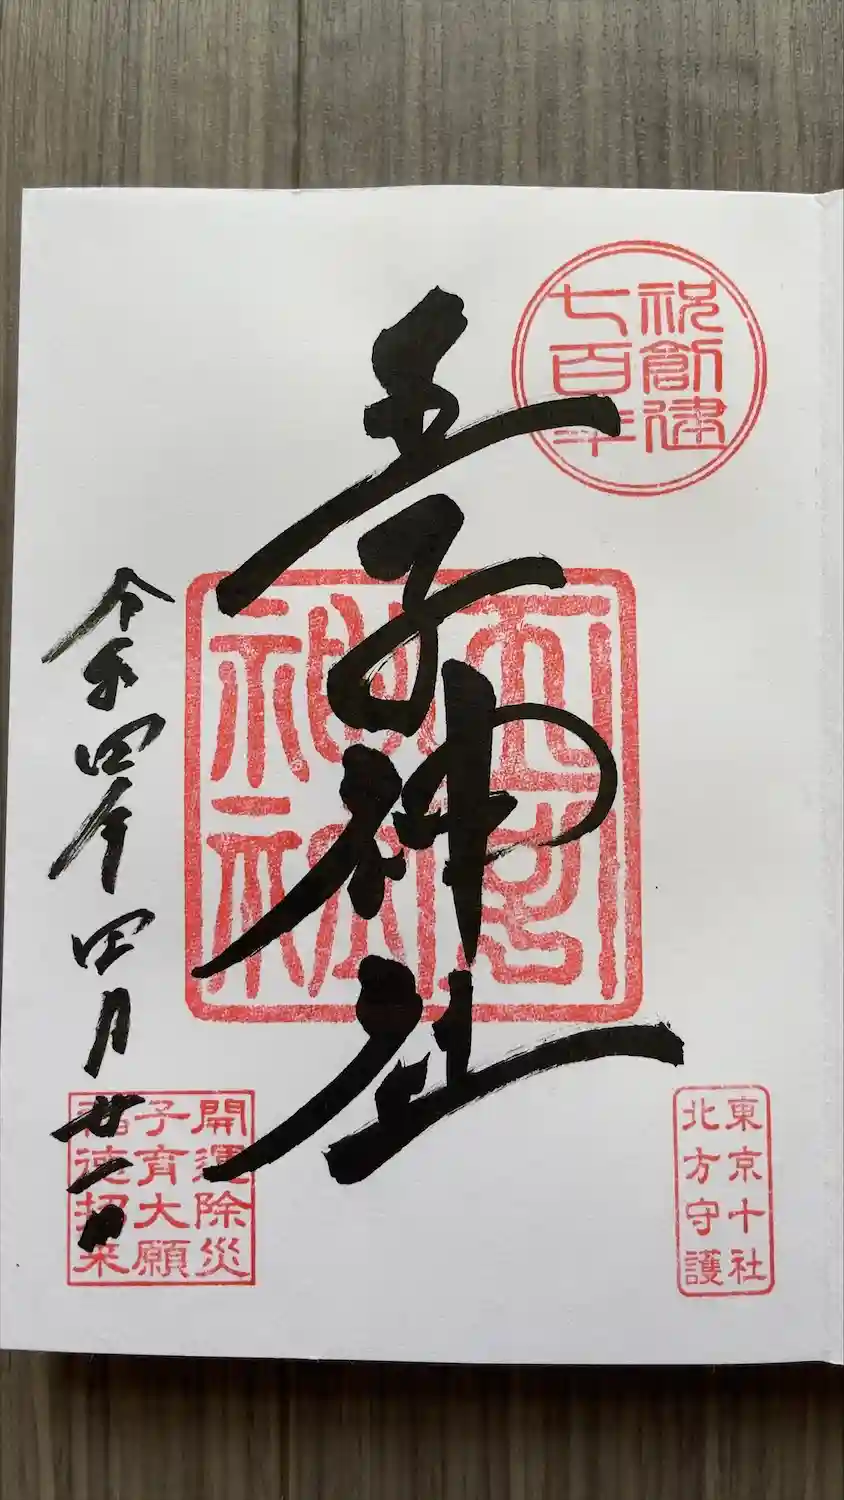 祝創建
七百年
王子神社
王子
神社
東京十社
北方守護
令和四年四月廿一日
開運除災
子育大願
福徳招来